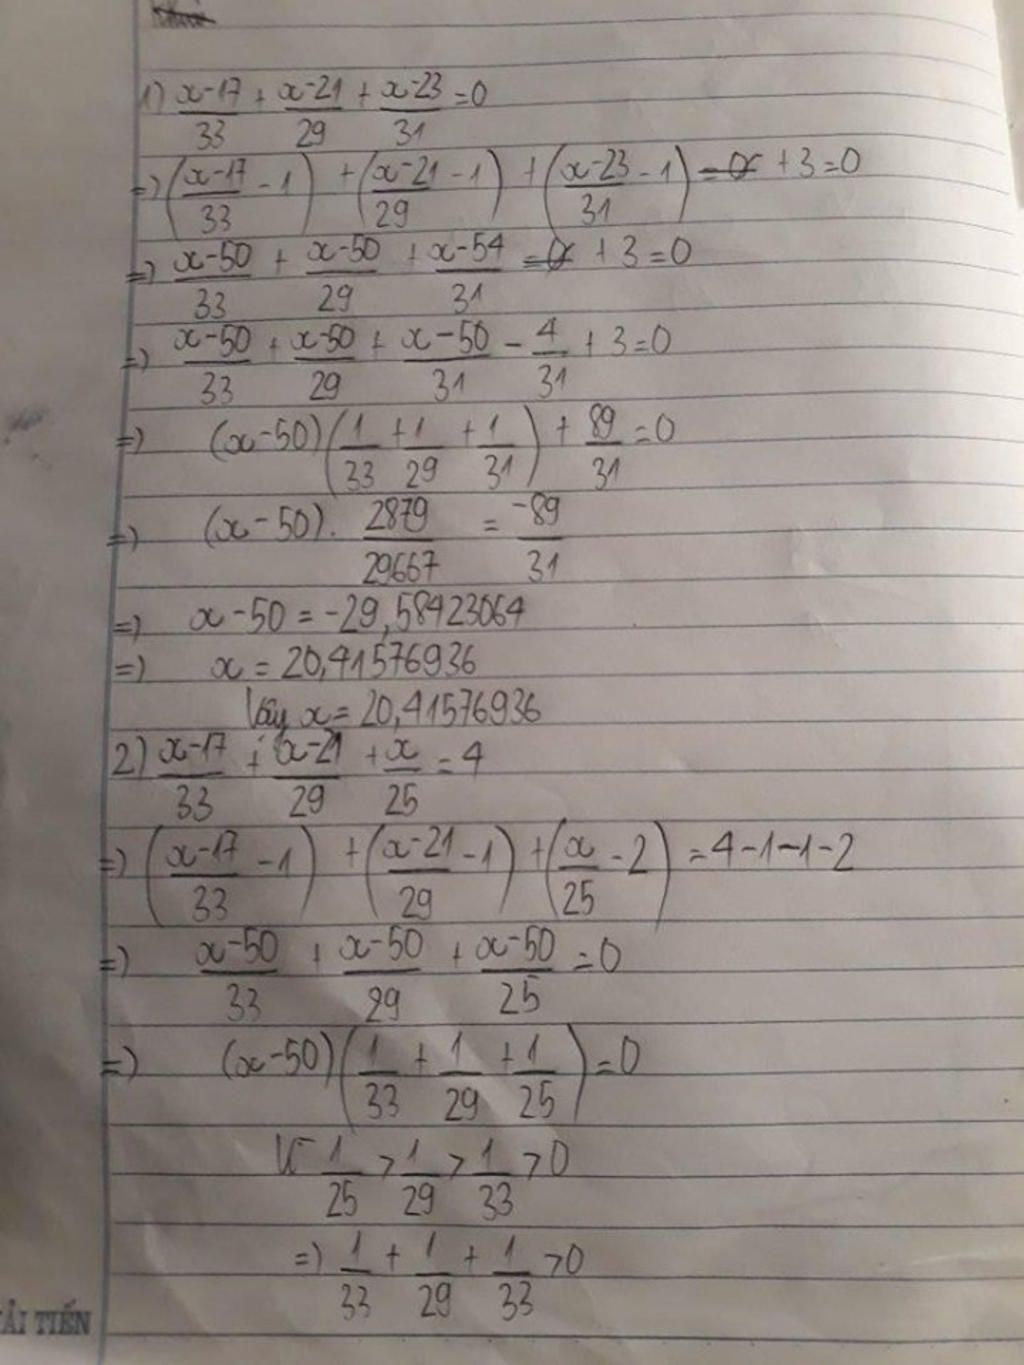 1) x-17/33 + x-21/29 + x-23/31 = 0
=) (x-17/33 - 1) + (x-21/29 - 1) + (x-23/31 - 1) + 3 = 0
=) x-50/33 + x-50/29 + x-54/31 + 3 = 0
=) x-50/33 + x-50/29 + x-50/31 - 4/31 + 3 = 0
=) (x-50)(1/33 + 1/29 + 1/31) + 89/31 = 0
=) (x-50). 2879/29667 = -89/31
=) x-50 = -29,58423064
=) x = 20,41576936
Vậy x = 20,41576936
2) x-17/33 + x-21/29 + x/25 = 4
=) (x-17/33 - 1) + (x-21/29 - 1) + (x/25 - 2) = 4-1-1-2
=) x-50/33 + x-50/29 + x-50/25 = 0
=) (x-50)(1/33 + 1/29 + 1/25) = 0
Vì 1/25 > 1/29 > 1/33 > 0
=) 1/33 + 1/29 + 1/33 > 0
ẢI TIẾN